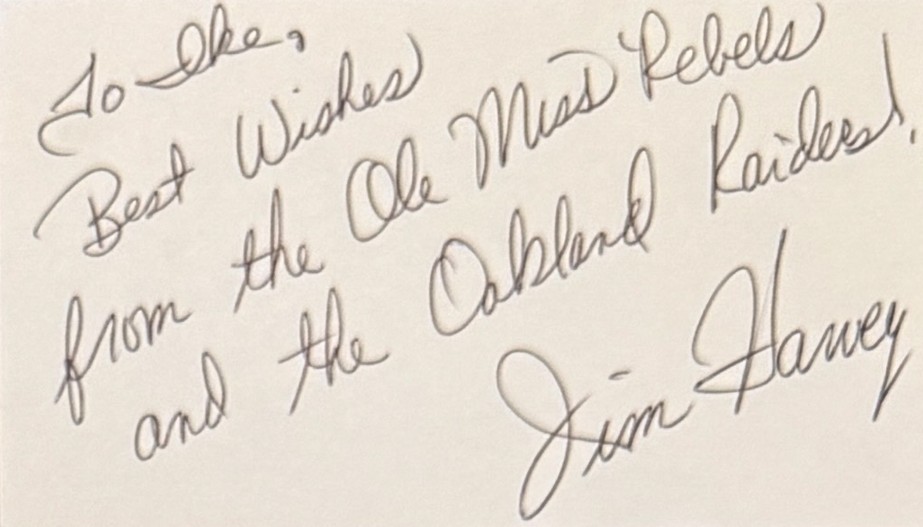 To Ike,
Best Wishes
from the Ole Miss Rebels
and the Oakland Raiders!
Jim Harvey